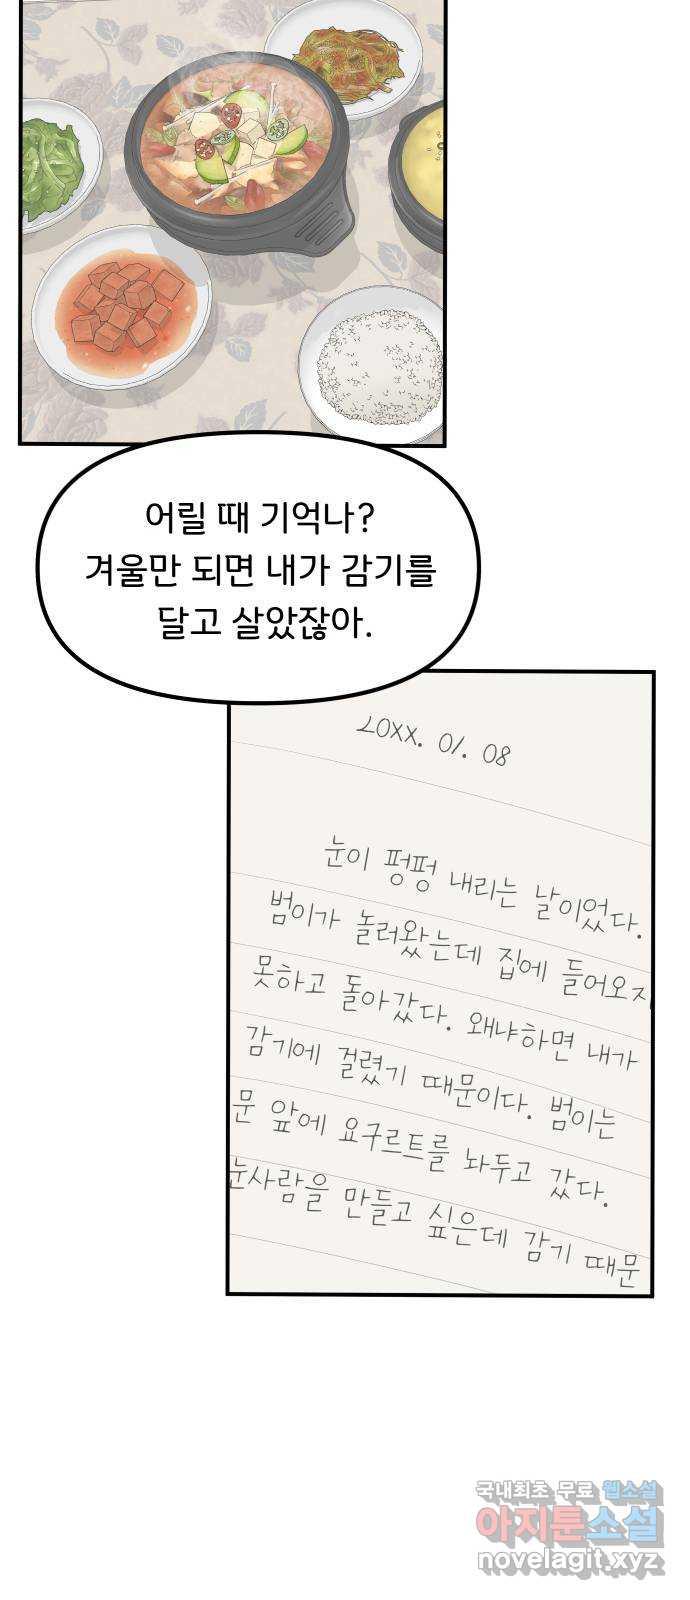 어릴 때 기억나?
겨울만 되면 내가 감기를
달고 살았잖아.
20XX. 01. 08
눈이 펑펑 내리는 날이었다.
범이가 놀러왔는데 집에 들어오지
못하고 돌아갔다. 왜냐하면 내가
감기에 걸렸기 때문이다. 범이는
문 앞에 요구르트를 놔두고 갔다.
눈사람을 만들고 싶은데 감기 때문
국내최초 무료 웹소설
아지툰소설
novelagit.xyz